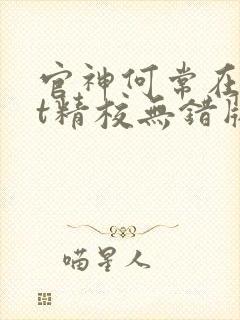 官神何常在
t精校無錯版
喵星人